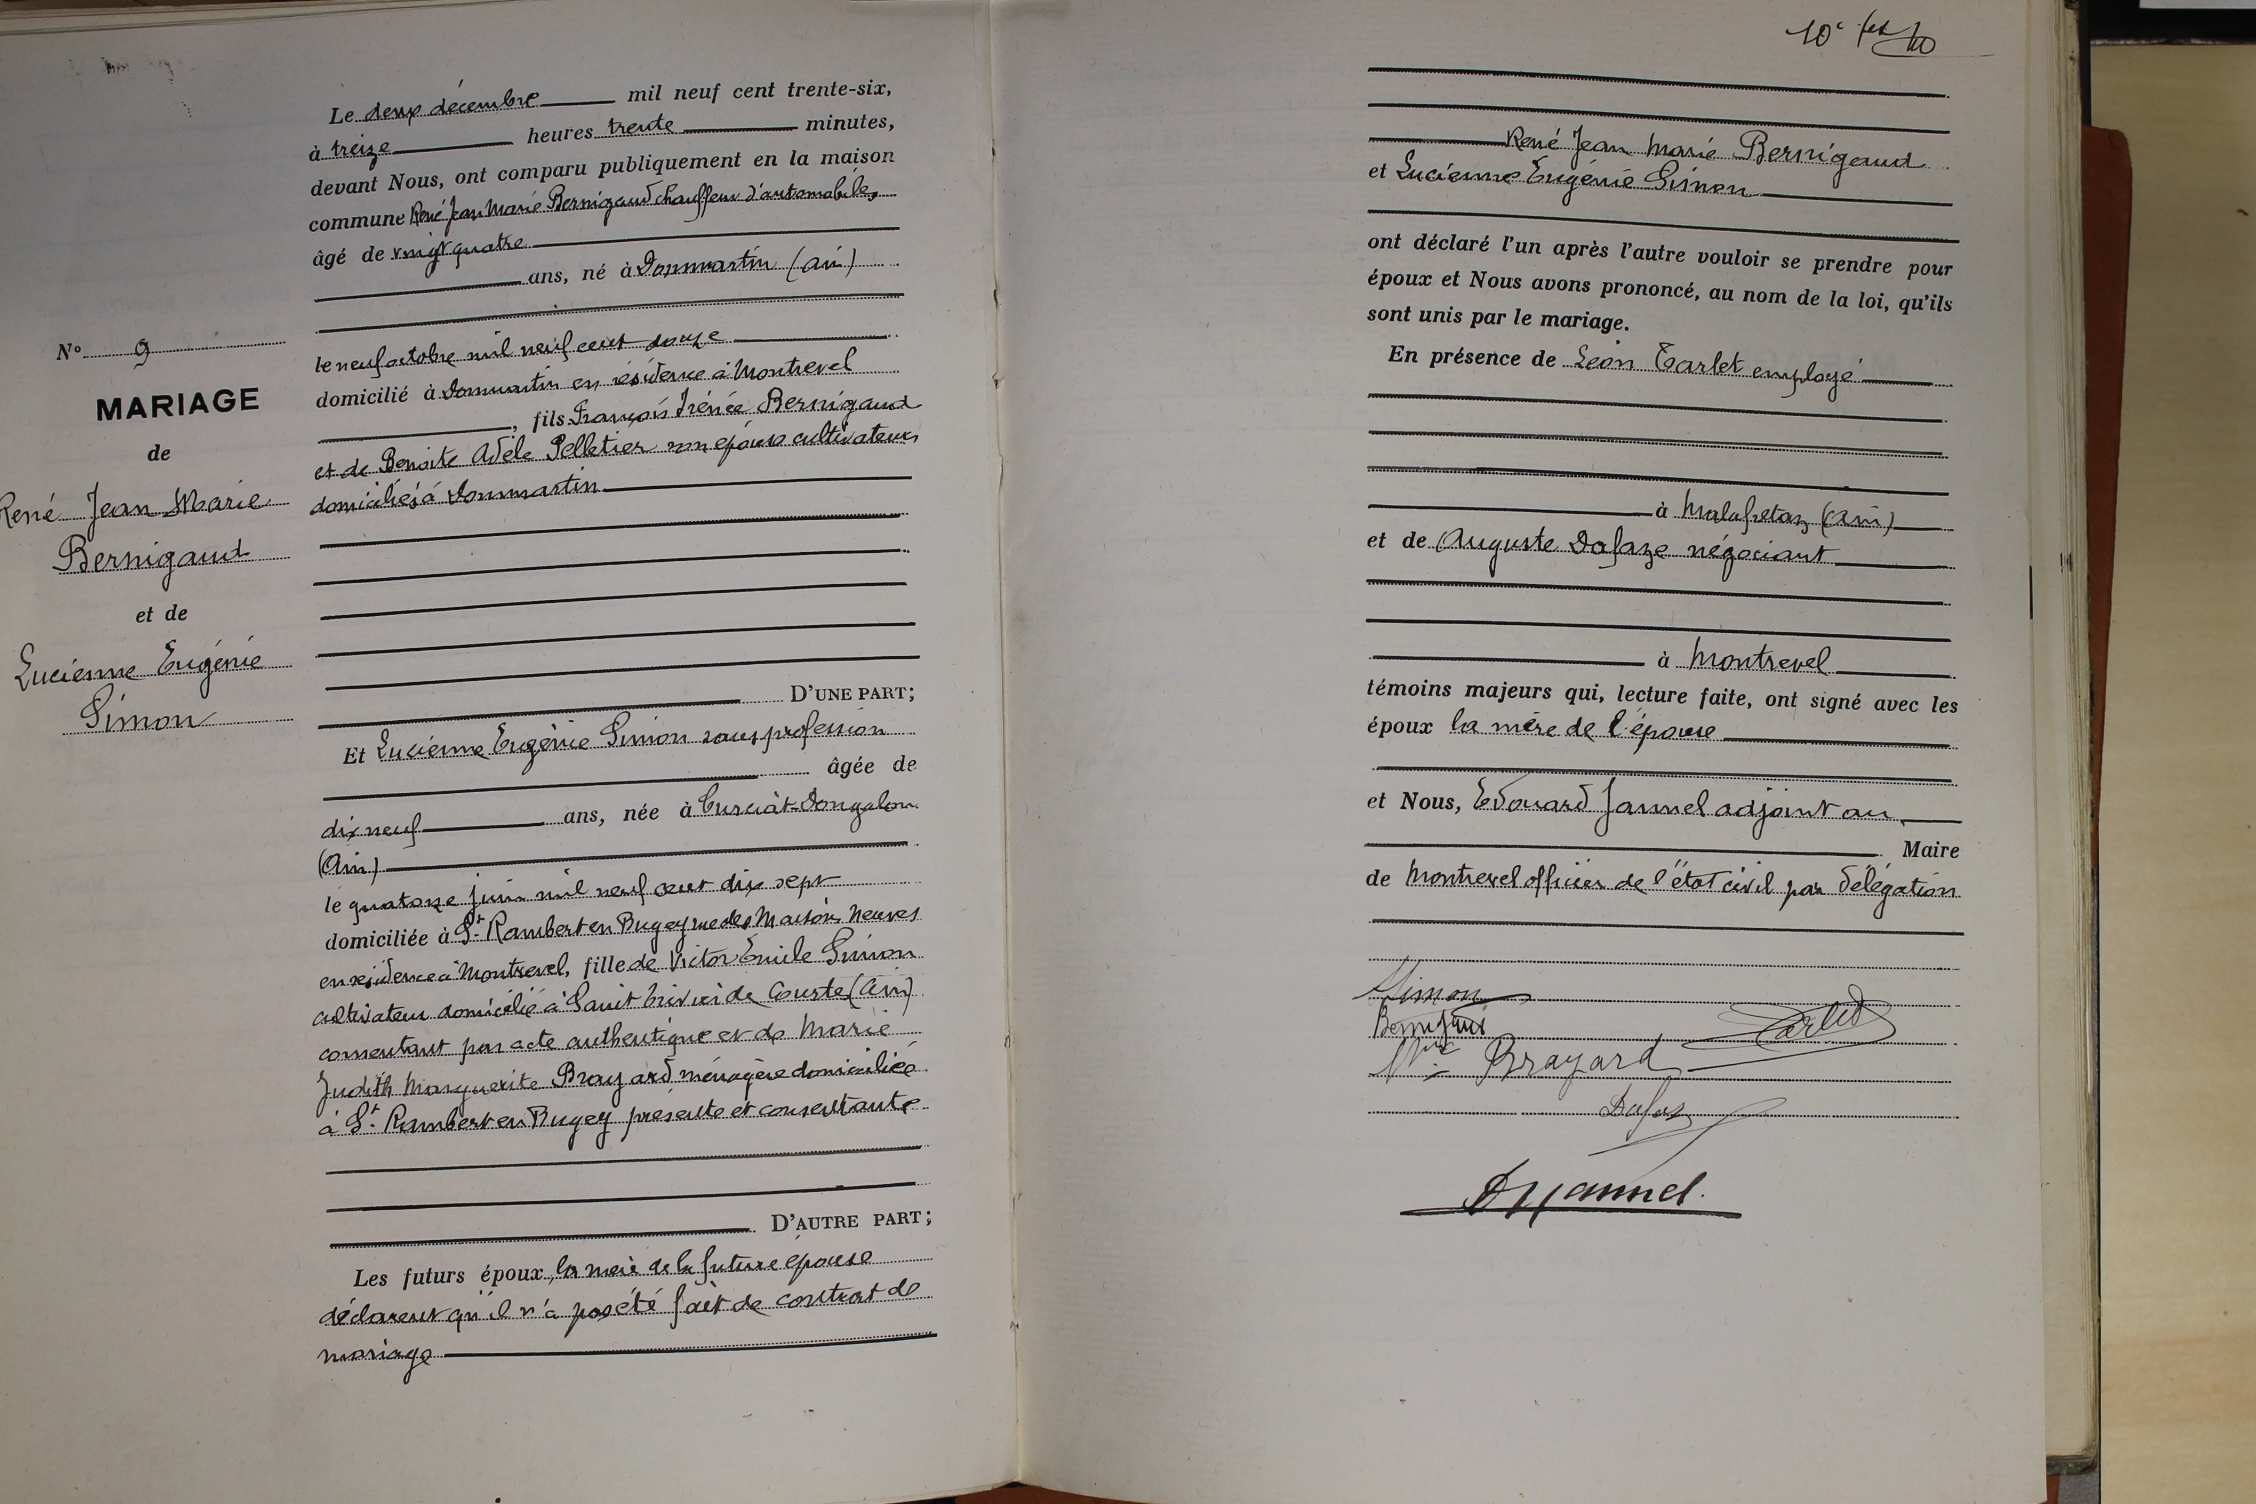 N° 9
MARIAGE
de
René Jean Marie
Bernigaud
et de
Lucienne Eugénie
Simon
Le deux décembre mil neuf cent trente-six,
à treize heures trente minutes,
devant Nous, ont comparu publiquement en la maison
commune René Jean Marie Bernigaud chauffeur d'automobiles
âgé de vingt quatre
ans, né à Dommartin (Ain)
le neuf octobre mil neuf cent douze
domicilié à Dommartin en résidence à Montrevel
, fils François Irénée Bernigaud
et de Benoite Adèle Pelletier son épouse cultivateurs
domiciliés à Dommartin
D'UNE PART;
Et Lucienne Eugénie Simon sans profession
âgée de
dix neuf ans, née à Curciat-Dongalon
(Ain)
le quatorze juin mil neuf cent dix sept
domiciliée à St Rambert en Bugey rue des Maisons Neuves
en résidence à Montrevel, fille de Victor Émile Simon
cultivateur domicilié à Saint Trivier de Courte (Ain)
consentant par acte authentique et de Marie
Judith Marguerite Brayard ménagère domiciliée
à St Rambert en Bugey présente et consentante
D'AUTRE PART;
Les futurs époux, la mère de la future épouse
déclarent qu'il n'a pas été fait de contrat de
mariage
10e
René Jean Marie Bernigaud
et Lucienne Eugénie Simon
ont déclaré l'un après l'autre vouloir se prendre pour
époux et Nous avons prononcé, au nom de la loi, qu'ils
sont unis par le mariage.
En présence de Léon Tarlet employé
à Malafretaz (Ain)
et de Auguste Dafaze négociant
à Montrevel
témoins majeurs qui, lecture faite, ont signé avec les
époux la mère de l'épouse
et Nous, Edouard Jannel adjoint au
Maire
de Montrevel officier de l'état civil par délégation
Simon
Bernigaud
Tarlet
Brayard
Jannel